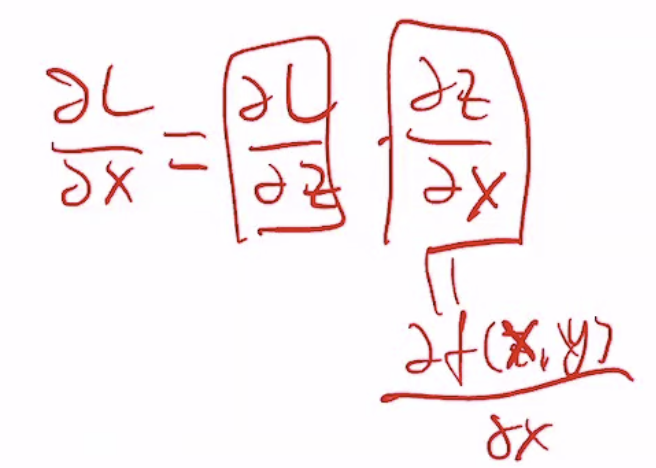 ∂L/∂x = ∂L/∂z · ∂z/∂x
||
∂f(x,y)/∂x